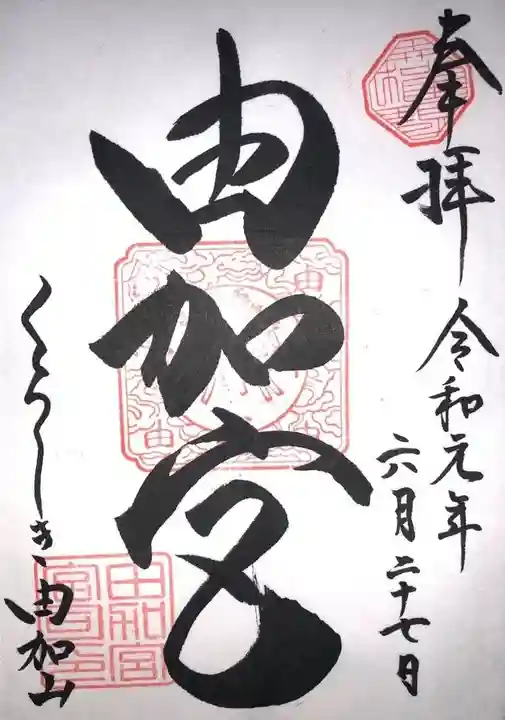 奉拝
令和元年
六月二十七日
由加宮
くらしき
由加山
由加宮